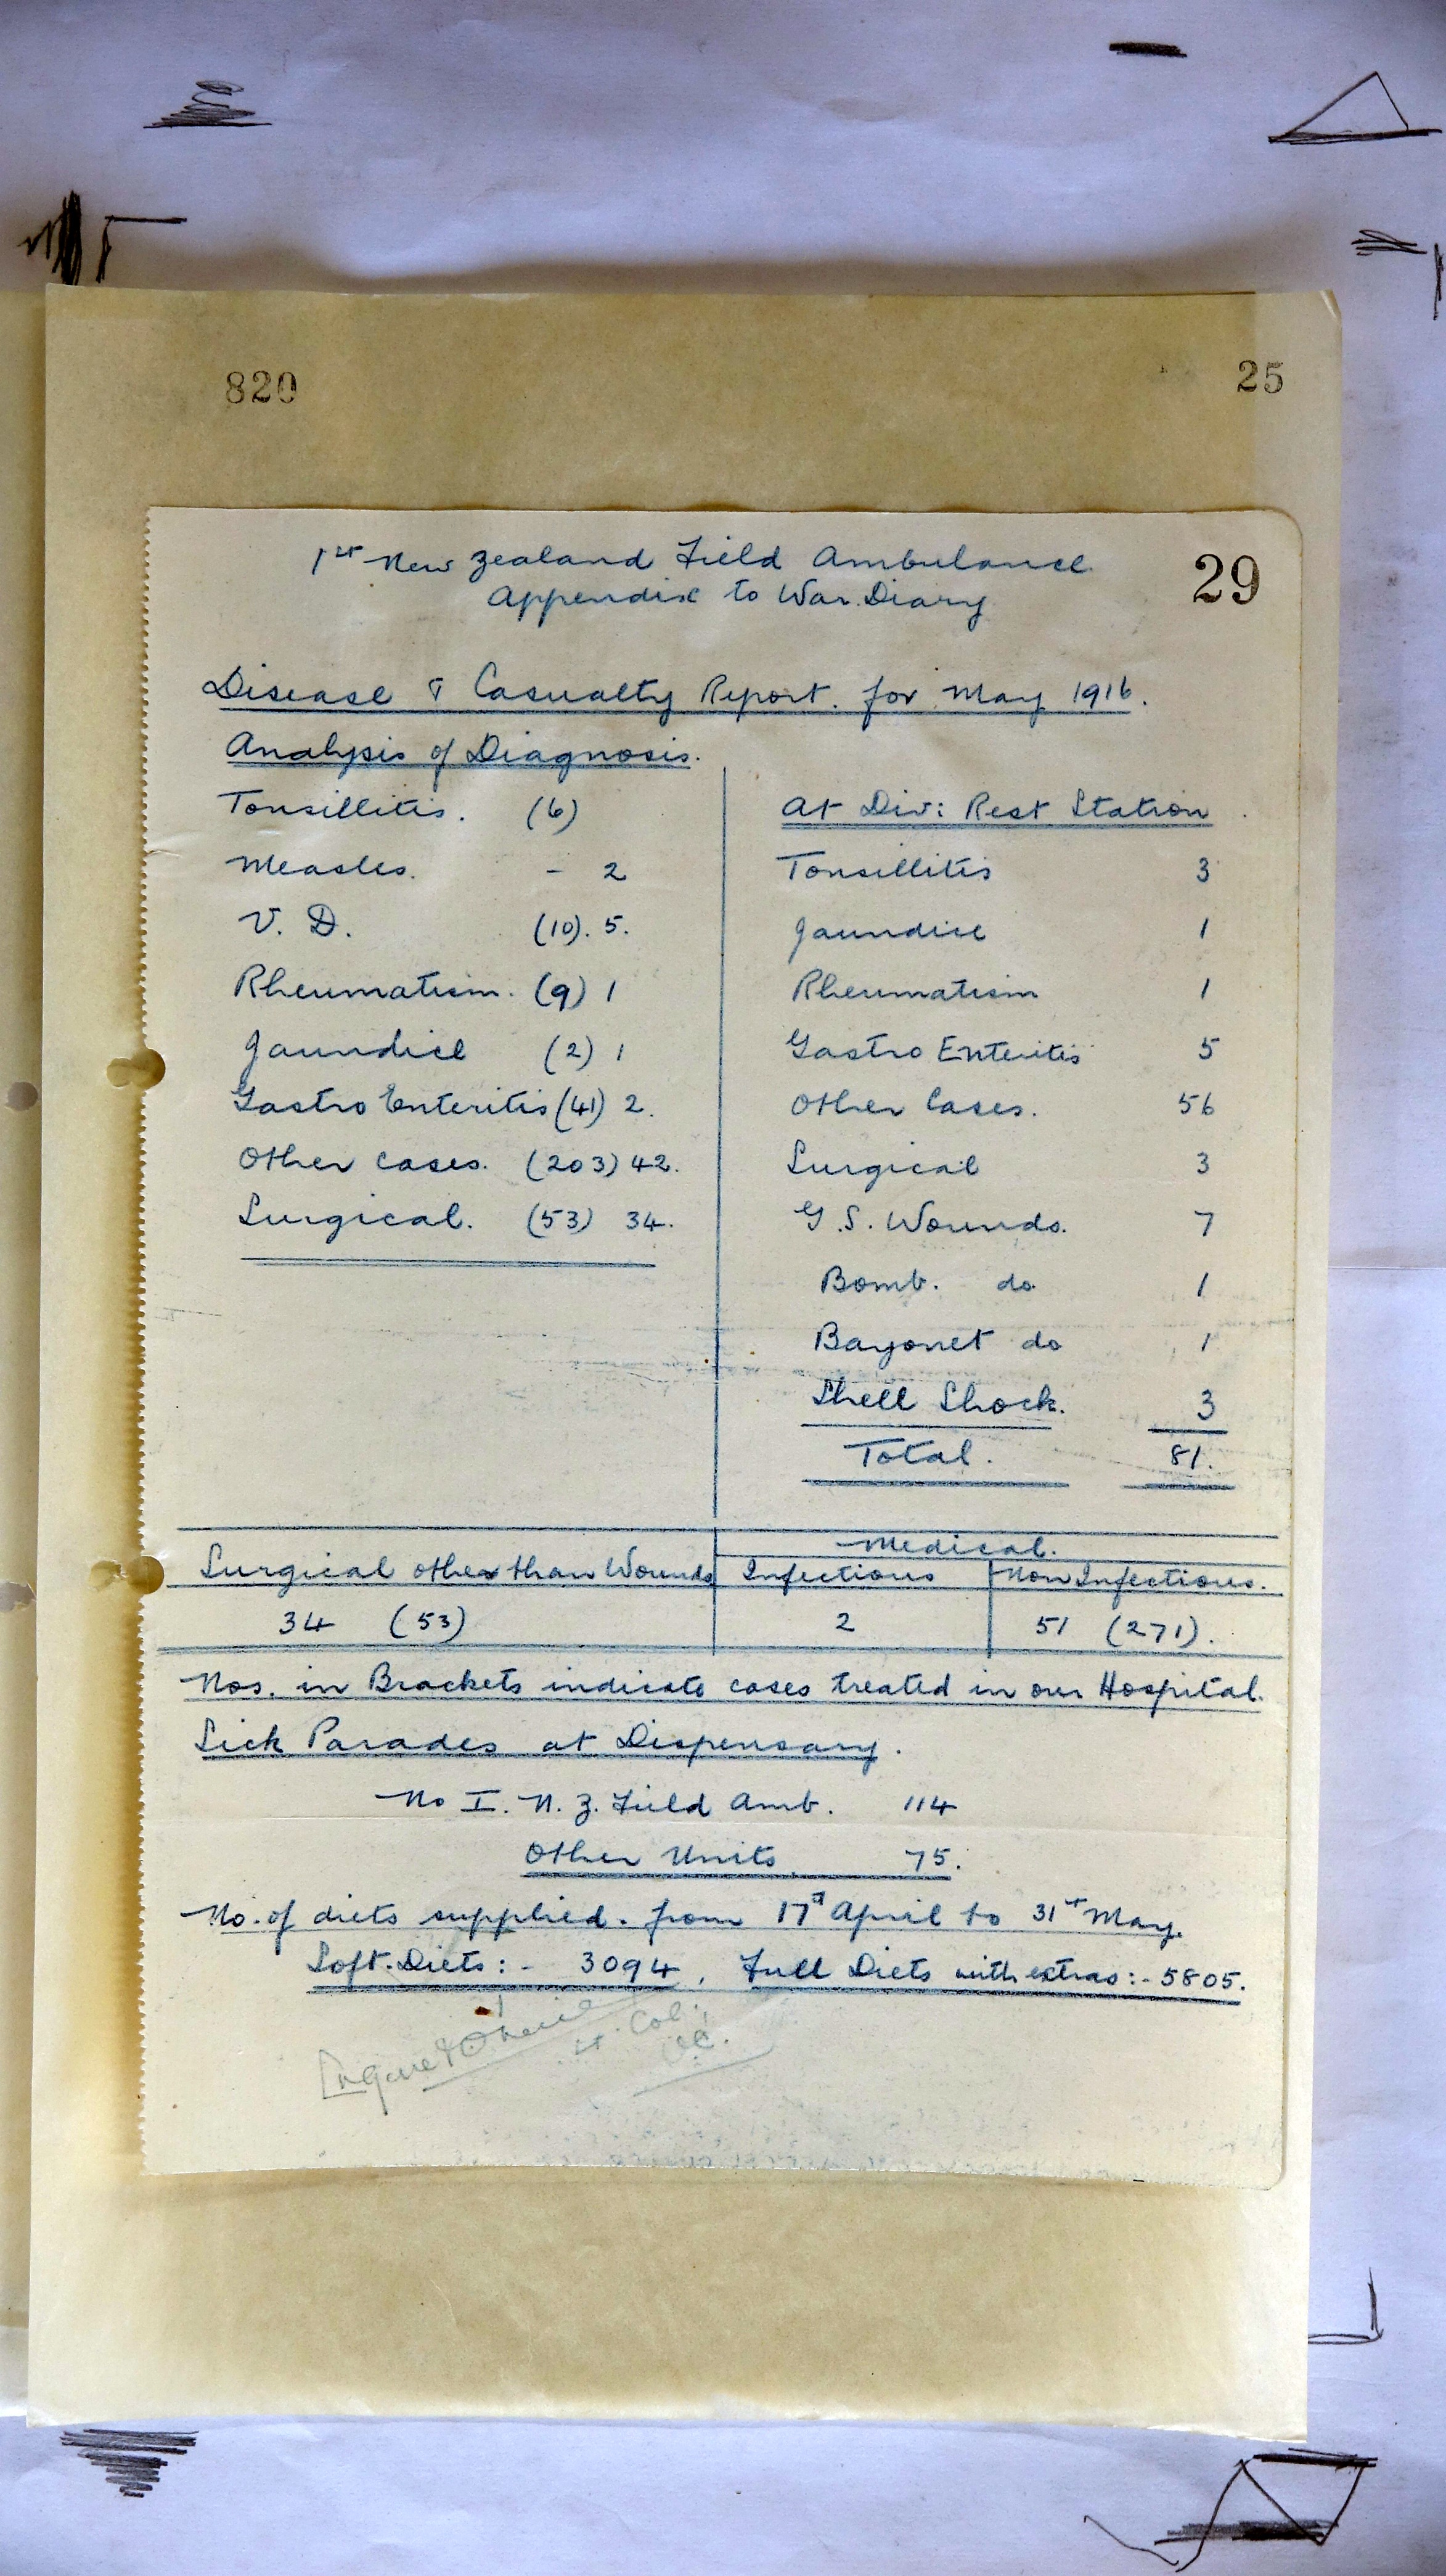 820
25
29
1st New Zealand Field Ambulance.
Appendix to War. Diary
Disease & Casualty Report. for May 1916.
Analysis of Diagnosis.
Tonsillitis. (6)
Measles. - 2
V. D. (10). 5.
Rheumatism. (9) 1
Jaundice (2) 1
Gastro Enteritis (41) 2.
Other cases. (203) 42.
Surgical. (53) 34.
At Div: Rest Station
Tonsillitis 3
Jaundice 1
Rheumatism 1
Gastro Enteritis 5
Other Cases. 56
Surgical 3
G. S. Wounds. 7
Bomb. do 1
Bayonet do 1
Shell Shock. 3
Total. 81.
Medical.
Surgical other than Wounds Infectious Non Infectious.
34 (53) 2 51 (271).
Nos. in Brackets indicate cases treated in our Hospital.
Sick Parades at Dispensary.
No I. N. Z. Field Amb. 114
Other Units 75.
No. of diets supplied. from 17th April to 31st May.
Soft. Diets: - 3094, Full Diets with extras: - 5805.
Lt. Col.